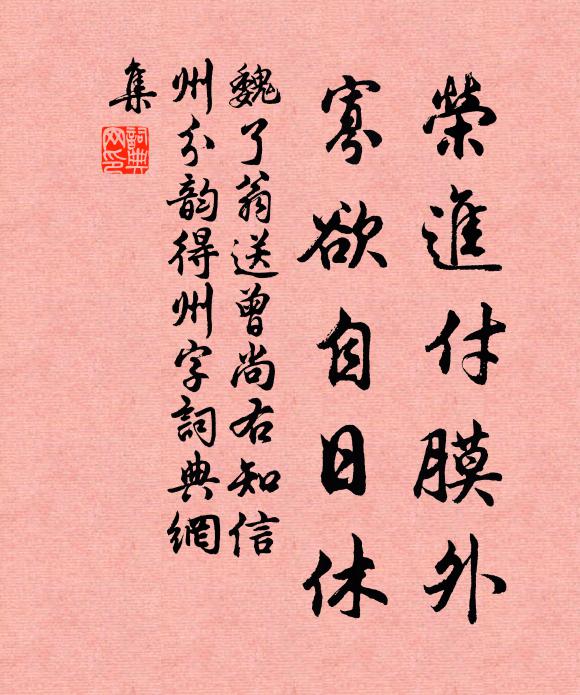 榮進付膜外
寡欲自日休
魏了翁送曾尚右知信
州分韵得州字詞典網
集
詞典網印